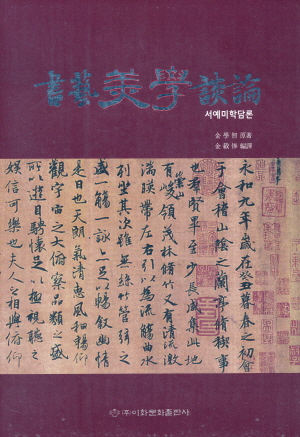 書藝美學談論
서예미학담론
金學智 原著
金 編譯
永和九年歲在癸丑暮春之初會
于會稽山陰之蘭亭脩稧事
也羣賢畢至少長咸集此地
有崇山峻領茂林脩竹又有清流激
湍暎帶左右引以為流觴曲水
列坐其次雖無絲竹管弦之
盛一觴一詠亦足以暢叙幽情
是日也天朗氣清惠風和暢仰
觀宇宙之大俯察品類之盛
所以遊目騁懷足以極視聽之
娛信可樂也夫人之相與俯仰
(주)이화문화출판사